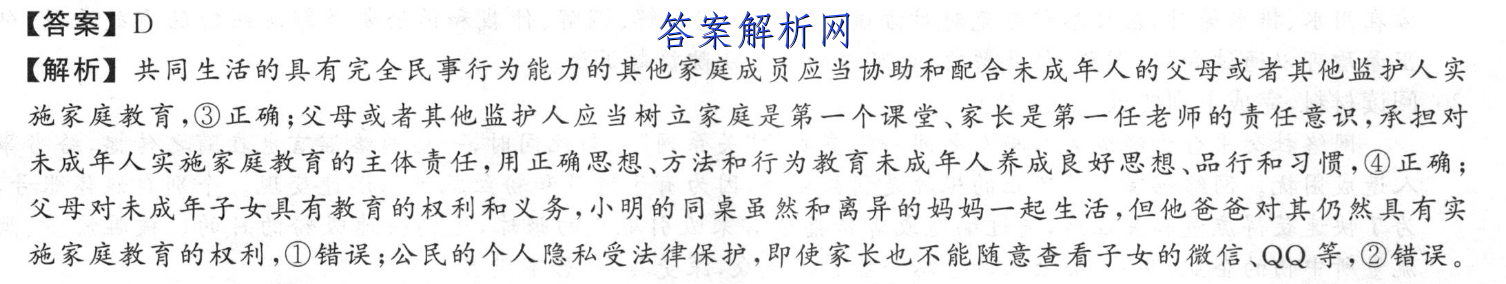 【答案】D
答案解析网
【解析】共同生活的具有完全民事行为能力的其他家庭成员应当协助和配合未成年人的父母或者其他监护人实
施家庭教育,③正确;父母或者其他监护人应当树立家庭是第一个课堂、家长是第一任老师的责任意识,承担对
未成年人实施家庭教育的主体责任,用正确思想、方法和行为教育未成年人养成良好思想、品行和习惯,④正确;
父母对未成年子女具有教育的权利和义务,小明的同桌虽然和离异的妈妈一起生活,但他爸爸对其仍然具有实
施家庭教育的权利,①错误;公民的个人隐私受法律保护,即使家长也不能随意查看子女的微信、QQ等,②错误。